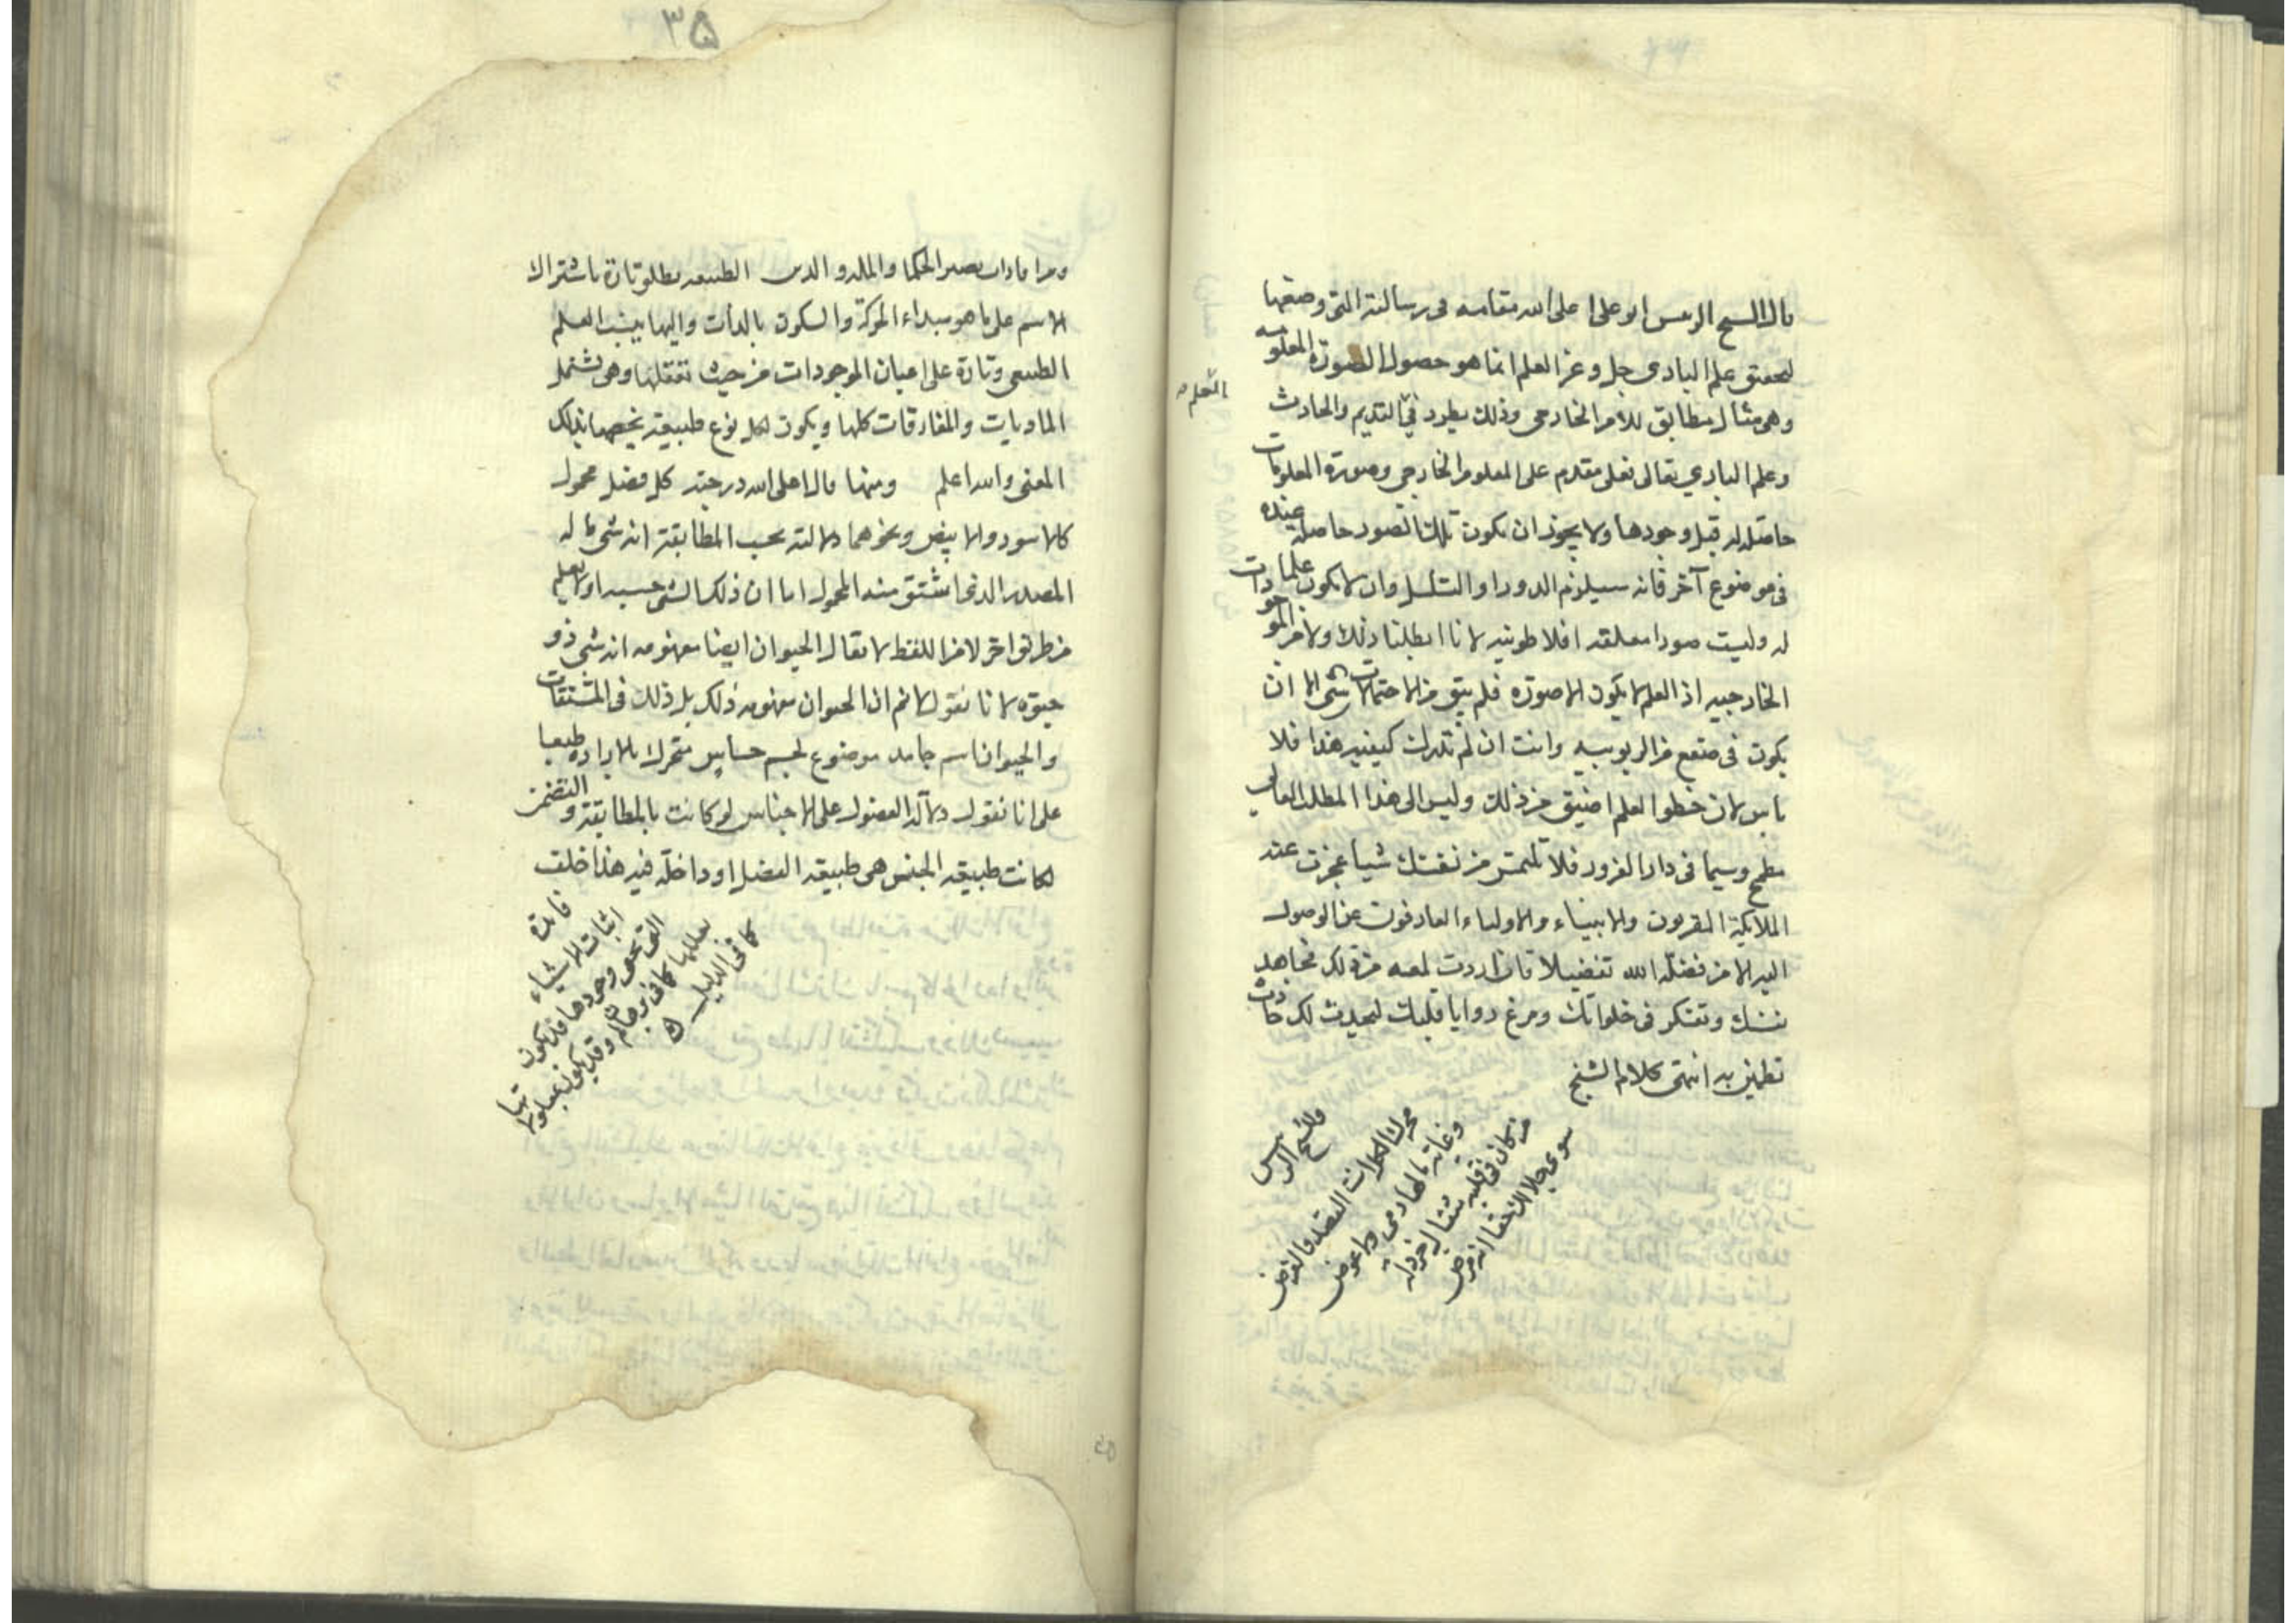 قال الشيخ الرئيس ابو على اعلى الله مقامه فى رسالته التى وضعها
لتحقيق علم البارى جل وعز العلم انما هو حصول الصورة المعلومه
وهى مثال مطابق للأمر الخارجى وذلك يطرد فى القديم والحادث
وعلم الباري تعالى فعلى مقدم على المعلوم الخارجى وصورة المعلومات
حاصله له قبل وجودها ولا يجوز ان يكون تلك الصور حاصله عنده
فى موضوع آخر فانه سيلزم الدور او التسلسل وان لا يكون علما
له وليست صورا معلقه افلاطونيه لانا ابطلنا ذلك ولا من الموجودات
الخارجيه اذ العلم لا يكون الا صورة فلم يبق من الاحتمالات شى الا ان
يكون فى صقع من الربوبيه وانت ان لم تدرك كيفيه هذا فلا
باس لان خطوا لعلم اضيق من ذلك وليس الى هذا المطلب العالى
مطمح وسيما فى دار الغرور فلا تلتمس من نفسك شيا عجزت عنه
الملائكة المقربون والانبياء والاولياء العارفون عن الوصول
اليه الا من فضله الله تفضيلا فان اردت لمعه من ذلك فجاهد
نفسك وتفكر فى خلواتك وفرغ زوايا قلبك ليحدث لك حادث
تطمئن به انتهى كلام الشيخ
وللشيخ الرئيس
محرك الكل انت القصد والغرض
وغاية مالها دمى ولا عوض
من كان فى قلبه مثقال خردلة
سوى جلالك فاعلم انه مرض
٣٥
الاسم على ما هو مبداء الحركة والسكون بالذات واليها ينسب العلم
الطبيعى وتارة على اعيان الموجودات من حيث تعقلها وهى تشتمل
الماديات والمفارقات كلها ويكون لكل نوع طبيعة يخصها بذلك
المعنى والله اعلم ومنها قال اعلى الله درجته كل فصل محمول
كالاسود والابيض ونحوهما دلالته بحسب المطابقة انه شى ما له
المصدر الذى اشتق منه المحمول اما ان ذلك الشى جسم او لا يعلم
من طريق اخر لا من اللفظ لا يقال الحيوان ايضا مفهومه انه شى ذو
حيوة لانا نقول لا نم ان الحيوان مفهومه ذلك بل ذلك فى المشتقات
والحيوان اسم جامد موضوع لجسم حساس متحرك بالاراده طبعا
على انا نقول دلالة الفصول على الاجناس لو كانت بالمطابقة والتضمن
لكانت طبيعه الجنس هى طبيعه الفصل او داخلة فيه هذا خلف
فايدة
اثبات الاشياء
التى يخفى وجودها قد يكون
بعللها كما فى برهان لم وقد يكون بمعلولاتها
كما فى الدليل